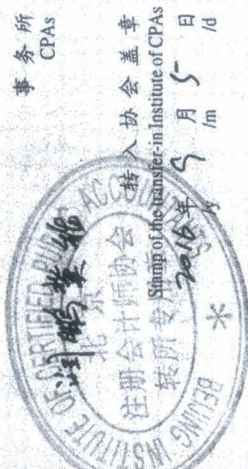 事务所
CPAs
转入协会盖章
Stamp of the transfer-in Institute of CPAs
2016年 9月 5日
/y /m /d
BEIJING INSTITUTE OF CERTIFIED PUBLIC ACCOUNTANTS
北京
注册会计师协会
转所专